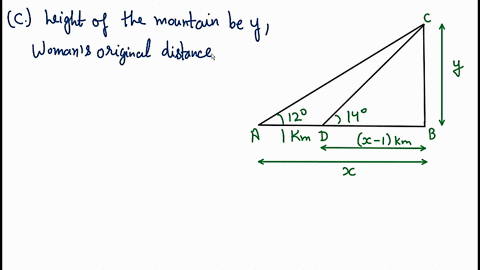 (C.) height of the mountain be y,
Woman's original distance
C
12°
14°
y
A
1 Km
D
(x-1) km
B
x